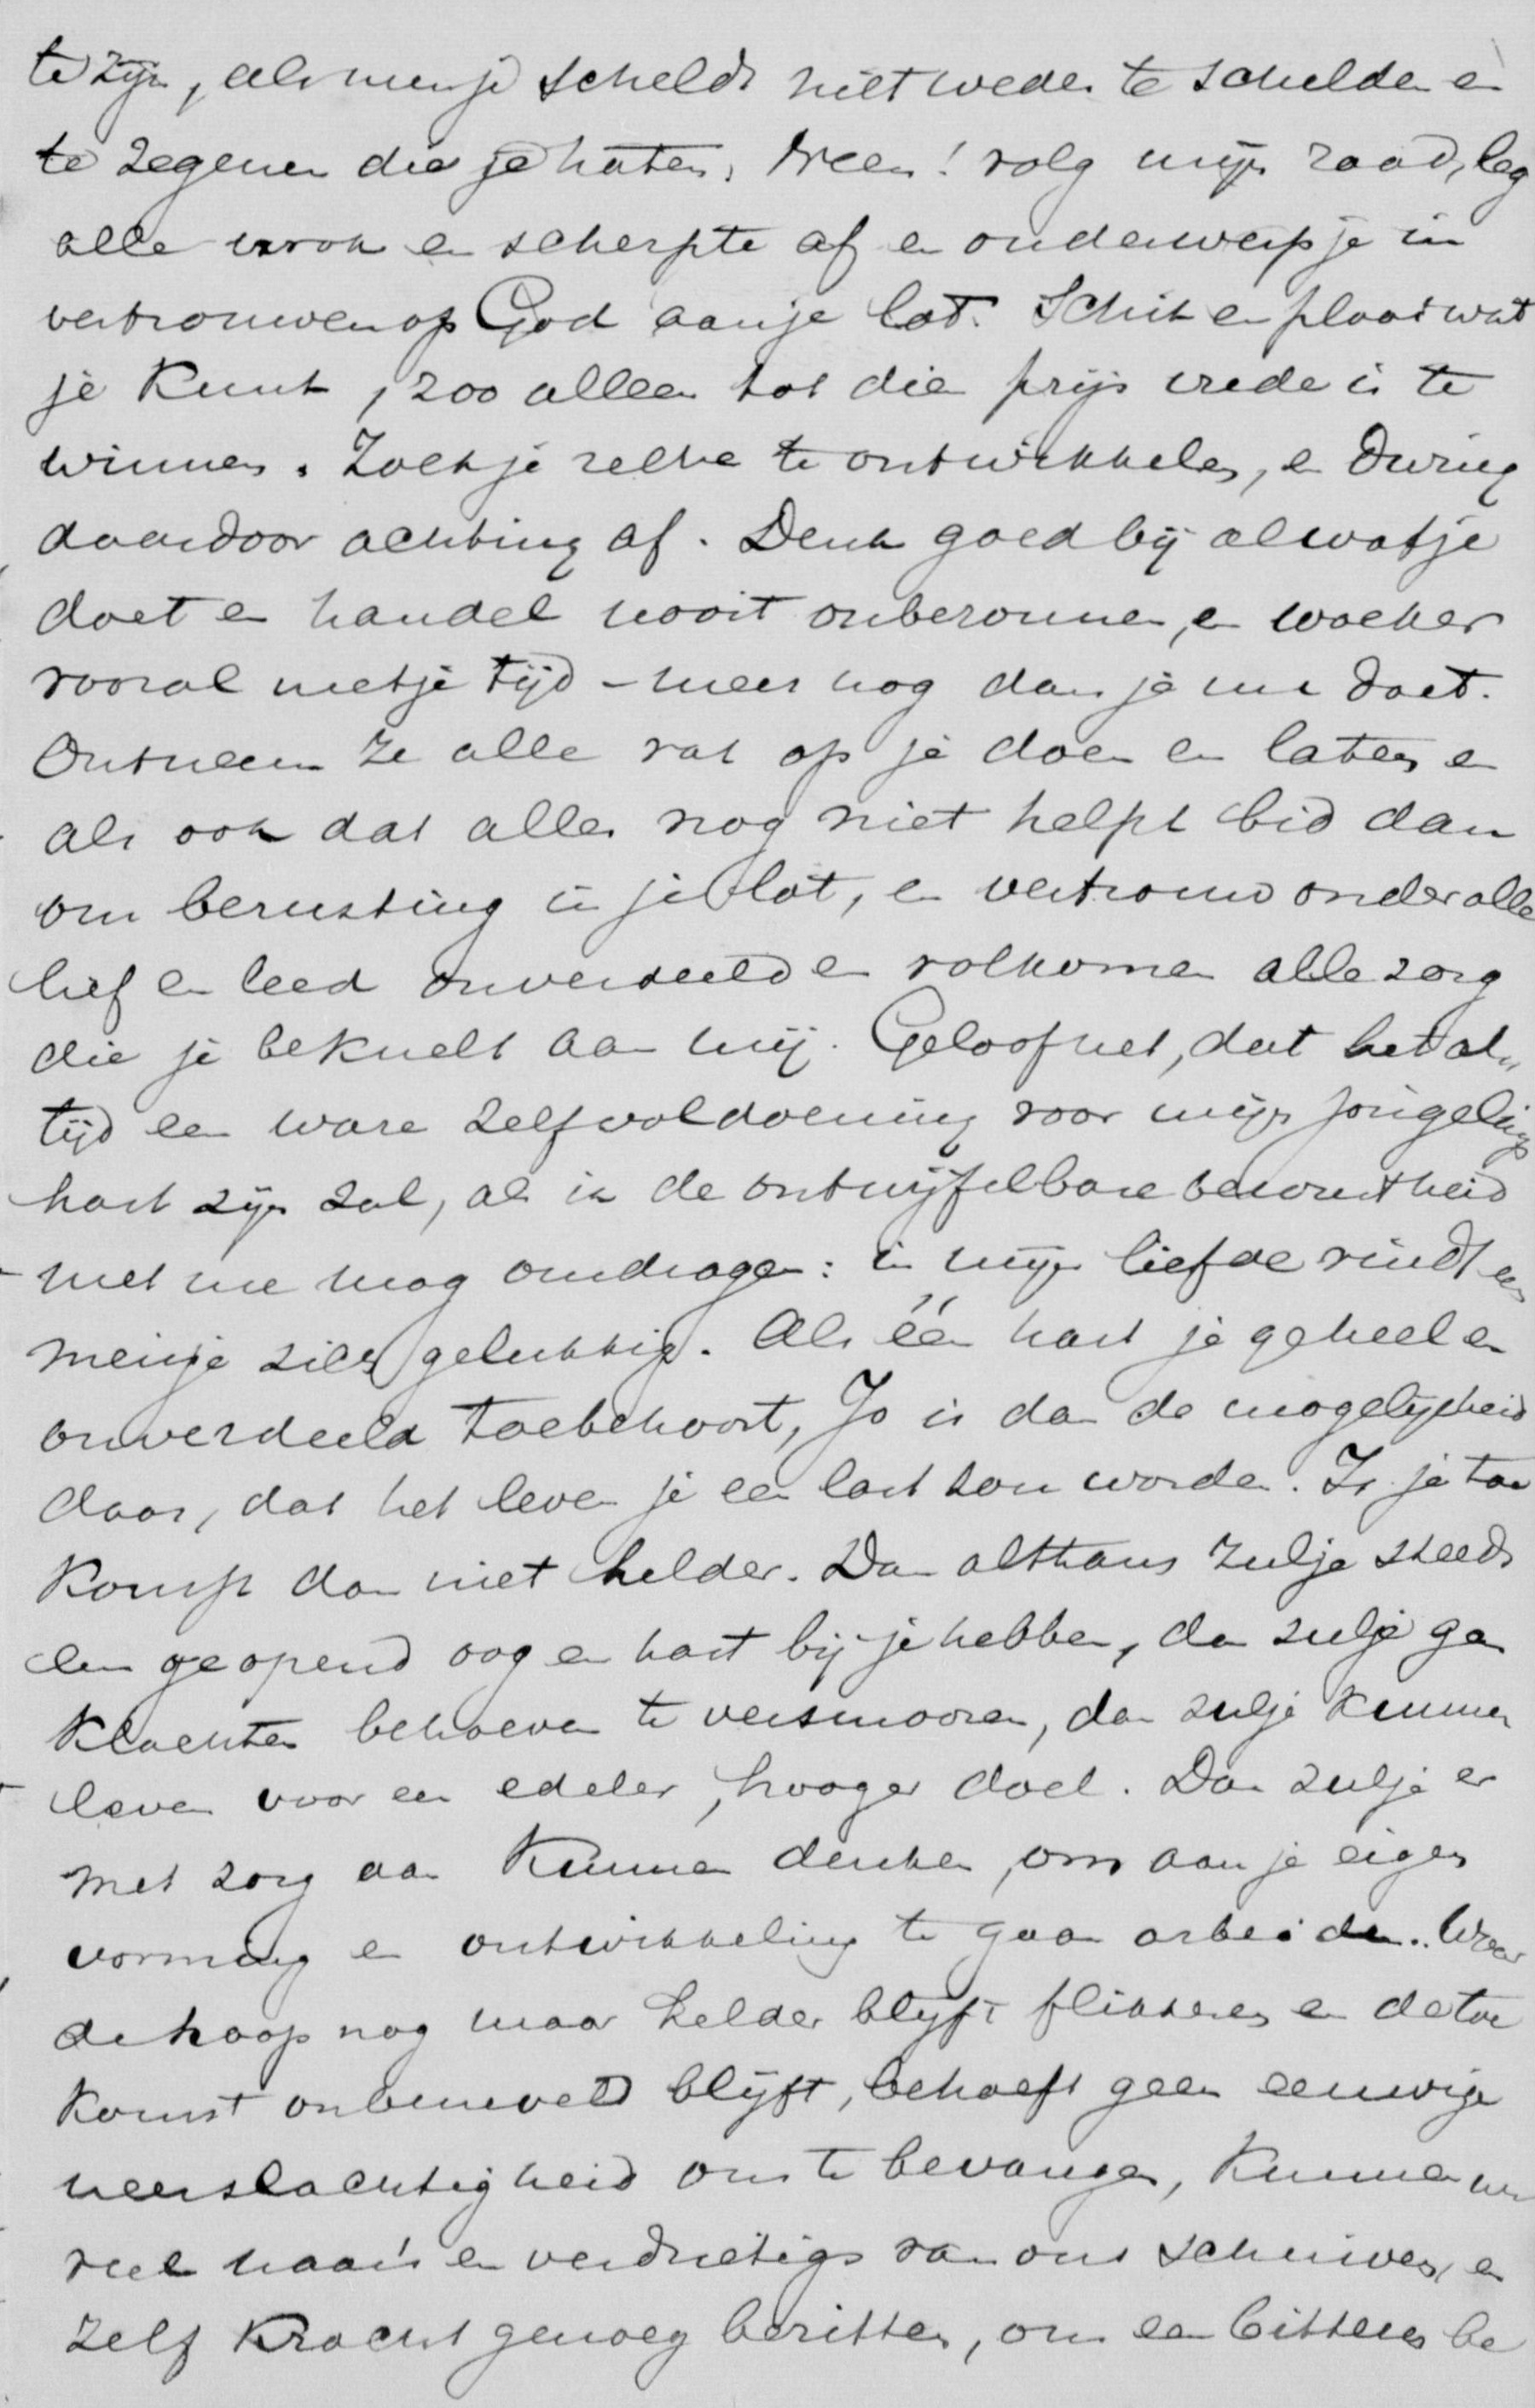 te zijn, als men je scheldt niet weder te schelden en
te zegenen die je haten. Neen! volg mijn raad, leg
alle wrok en scherpte af en onderwerp je in
vertrouwen op God aan je lot. Schik en plooi wat
je kunt, zoo alleen tot die prijs vrede is te
winnen. Zoek je zelve te ontwikkelen, en dwing
daardoor achting af. Denk goed bij al wat je
doet en handel nooit onbezonnen, en woeker
vooral met je tijd – meer nog dan je nu doet.
Ontneem ze alle vat op je doen en laten en
als ook dat alles nog niet helpt bid dan
om berusting in je lot, en vertrouw onder alle
lief en leed onverdeeld en volkomen alle zorg
die je beknelt aan mij. Geloof het, dat het al-
tijd een ware zelfvoldoening voor mijn jongelings
hart zijn zal, als ik de ontwijfelbare bewustheid
met me mag omdragen: in mijn liefde vindt een
meisje zich gelukkig. Als één hart je geheel en
onverdeeld toebehoort, Jo is dan de mogelijkheid
daar, dat het leven je een last zou worden. Is je toe
komst dan niet helder. Dan althans zul je steeds
een geopend oog en hart bij je hebben, dan zul je geen
klachten behoeven te versmooren, dan zul je kunnen
leven voor een edeler, hooger doel. Dan zul je er
met zorg aan kunnen denken, om aan je eigen
vorming en ontwikkeling te gaan arbeiden. Waar
de hoop nog maar helder blijft flikkeren en de toe
komst onbeneveld blijft, behoeft geen eeuwige
neerslachtigheid ons te bevangen, kunnen we
veel naars en verdrietigs van ons schuiven, en
zelf kracht genoeg bezitten, om een bitteren be